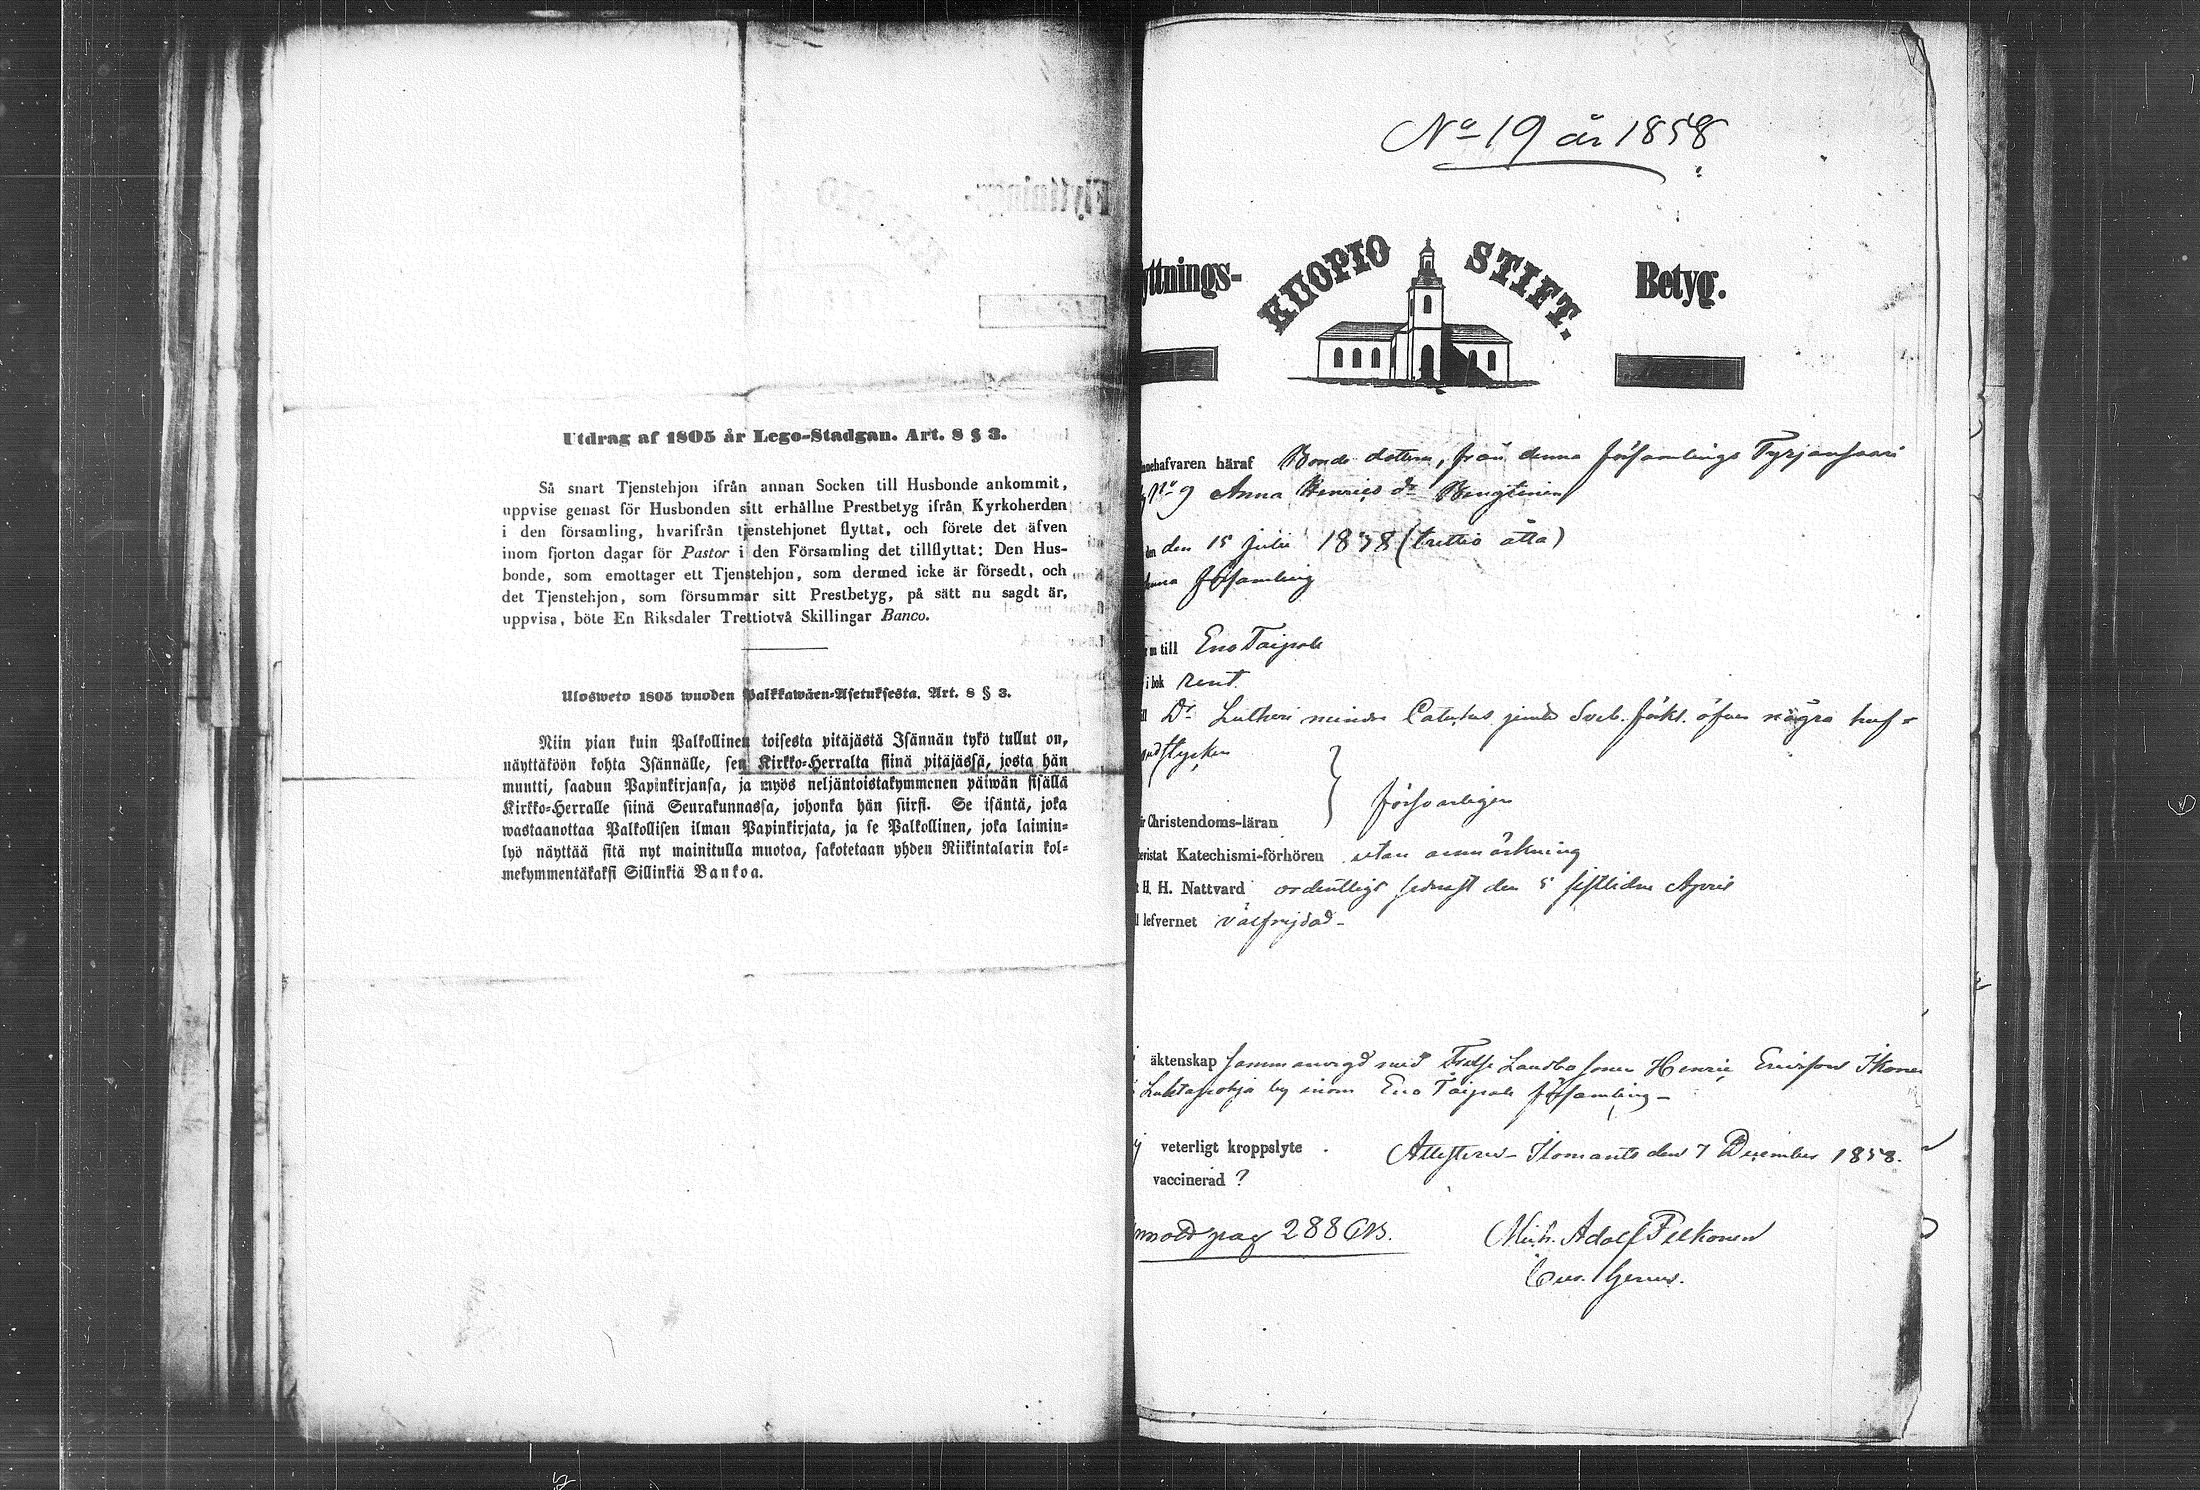 Utdrag af 1805 år Lego-Stadgan. Art. 8 § 3.
Så snart Tjenstehjon ifrån annan Socken till Husbonde ankommit,
uppvise genast för Husbonden sitt erhållne Prestbetyg ifrån Kyrkoherden
i den församling, hvarifrån tjenstehjonet flyttat, och förete det äfven
inom fjorton dagar för Pastor i den Församling det tillflyttat: Den Hus-
bonde, som emottager ett Tjenstehjon, som dermed icke är försedt, och
det Tjenstehjon, som försummar sitt Prestbetyg, på sätt nu sagdt är,
uppvisa, böte En Riksdaler Trettiotvå Skillingar Banco.
Ulosweto 1805 wuoden Palkkawäen-Asetuksesta. Art. 8 § 3.
Niin pian kuin Palkollinen toisesta pitäjästä Isännän tykö tullut on,
näyttäköön kohta Isännälle, sen Kirkko-Herralta siinä pitäjässä, josta hän
muutti, saadun Papinkirjansa, ja myös neljäntoistakymmenen päiwän sisällä
Kirkko-Herralle siinä Seurakunnassa, johonka hän siirsi. Se isäntä, joka
wastaanottaa Palkollisen ilman Papinkirjata, ja se Palkollinen, joka laimin-
lyö näyttää sitä nyt mainitulla muotoa, sakotetaan yhden Riikintalarin kol-
mekymmentäkaksi Sillinkiä Bankoa.
No 19 år 1858
yttnings- KUOPIO STIFT. Betyg.
nnehafvaren häraf Bonde dottern, från denna församlings Tyrjänsaari
No 9 Anna Henrics dr Bengtinen
den 15 Julii 1838 (trettio åtta)
församling
till Eno Taipale
i bok rent.
Dr Lutheri mindre Cateches jemte Sveb. förkl. öfver några huf-
stycken
Christendoms-läran försvarligen
Katechismi-förhören utan anmärkning
H. H. Nattvard ordentligt sednast den 5 sistlidne April
lefvernet välfrejdad-
äktenskap sammanvigd med Frälse Landbo sonen Henric Ericsson Ikonen
Luhtapohja by inom Eno Taipale församling-
veterligt kroppslyte . Attesteras- Ilomants den 7 December 1858.
vaccinerad ?
pag 288 Mich. Adolf Pelkonen